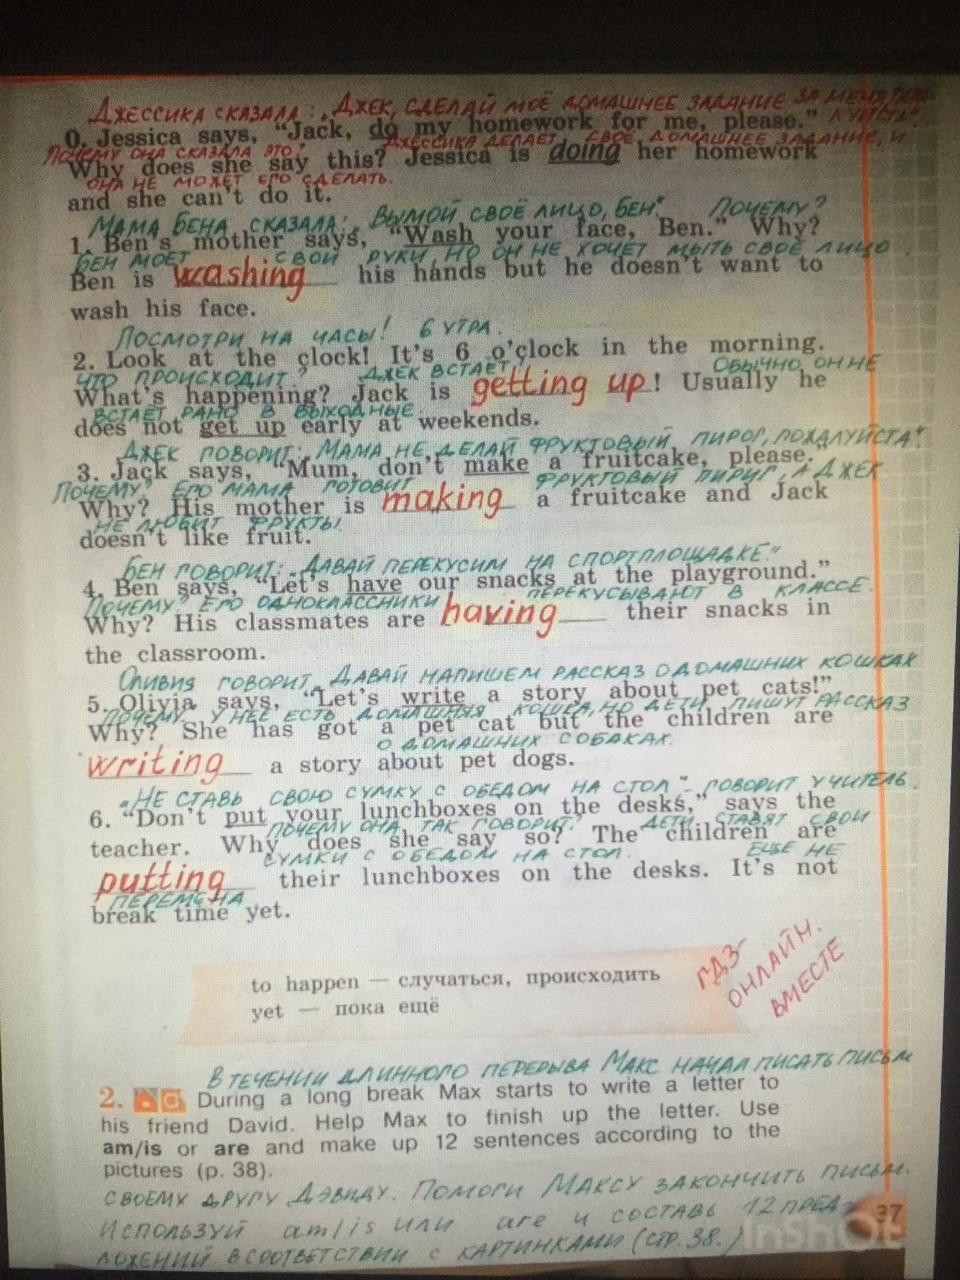 ДЖЕССИКА СКАЗАЛА: „ДЖЕК, СДЕЛАЙ МОЁ ДОМАШНЕЕ ЗАДАНИЕ ЗА МЕНЯ
0. Jessica says, “Jack, do my homework for me, please.”
ПОЧЕМУ ОНА СКАЗАЛА ЭТО? ДЖЕССИКА ДЕЛАЕТ СВОЁ ДОМАШНЕЕ ЗАДАНИЕ, И
Why does she say this? Jessica is doing her homework
ОНА НЕ МОЖЕТ ЕГО СДЕЛАТЬ.
and she can’t do it.
МАМА БЕНА СКАЗАЛА: „ВЫМОЙ СВОЁ ЛИЦО, БЕН". ПОЧЕМУ?
1. Ben’s mother says, “Wash your face, Ben.” Why?
БЕН МОЕТ СВОИ РУКИ, НО ОН НЕ ХОЧЕТ МЫТЬ СВОЁ ЛИЦО.
Ben is washing his hands but he doesn’t want to
wash his face.
ПОСМОТРИ НА ЧАСЫ! 6 УТРА.
2. Look at the clock! It’s 6 o’clock in the morning.
ЧТО ПРОИСХОДИТ? ДЖЕК ВСТАЕТ! ОБЫЧНО ОН НЕ
What’s happening? Jack is getting up! Usually he
ВСТАЕТ РАНО В ВЫХОДНЫЕ.
does not get up early at weekends.
ДЖЕК ГОВОРИТ: „МАМА НЕ ДЕЛАЙ ФРУКТОВЫЙ ПИРОГ, ПОЖАЛУЙСТА".
3. Jack says, “Mum, don’t make a fruitcake, please.”
ПОЧЕМУ? ЕГО МАМА ГОТОВИТ ФРУКТОВЫЙ ПИРИГ, А ДЖЕК
Why? His mother is making a fruitcake and Jack
НЕ ЛЮБИТ ФРУКТЫ.
doesn’t like fruit.
БЕН ГОВОРИТ: „ДАВАЙ ПЕРЕКУСИМ НА СПОРТПЛОЩАДКЕ."
4. Ben says, “Let’s have our snacks at the playground.”
ПОЧЕМУ? ЕГО ОДНОКЛАССНИКИ ПЕРЕКУСЫВАЮТ В КЛАССЕ.
Why? His classmates are having their snacks in
the classroom.
ОЛИВИЯ ГОВОРИТ „ДАВАЙ НАПИШЕМ РАССКАЗ О ДОМАШНИХ КОШКАХ
5. Olivia says, “Let’s write a story about pet cats!”
ПОЧЕМУ У НЕЁ ЕСТЬ ДОМАШНЯЯ КОШКА, НО ДЕТИ ПИШУТ РАССКАЗ
Why? She has got a pet cat but the children are
О ДОМАШНИХ СОБАКАХ.
writing a story about pet dogs.
„НЕ СТАВЬ СВОЮ СУМКУ С ОБЕДОМ НА СТОЛ" - ГОВОРИТ УЧИТЕЛЬ.
6. “Don’t put your lunchboxes on the desks,” says the
ПОЧЕМУ ОНА ТАК ГОВОРИТ? ДЕТИ СТАВЯТ СВОИ
teacher. Why does she say so? The children are
СУМКИ С ОБЕДОМ НА СТОЛ. ЕЩЕ НЕ
putting their lunchboxes on the desks. It’s not
ПЕРЕМЕНА
break time yet.
to happen — случаться, происходить
yet — пока ещё
ГДЗ
ОНЛАЙН.
ВМЕСТЕ
В ТЕЧЕНИИ ДЛИННОГО ПЕРЕРЫВА МАКС НАЧАЛ ПИСАТЬ ПИСЬМ
2. During a long break Max starts to write a letter to
his friend David. Help Max to finish up the letter. Use
am/is or are and make up 12 sentences according to the
pictures (p. 38).
СВОЕМУ ДРУГУ ДЭВИДУ. ПОМОГИ МАКСУ ЗАКОНЧИТЬ ПИСЬМ.
ИСПОЛЬЗУЙ am/is ИЛИ are И СОСТАВЬ 12 ПРЕД-
37
ЛОЖЕНИЙ В СООТВЕТСТВИИ С КАРТИНКАМИ (СТР. 38.)
InShOt